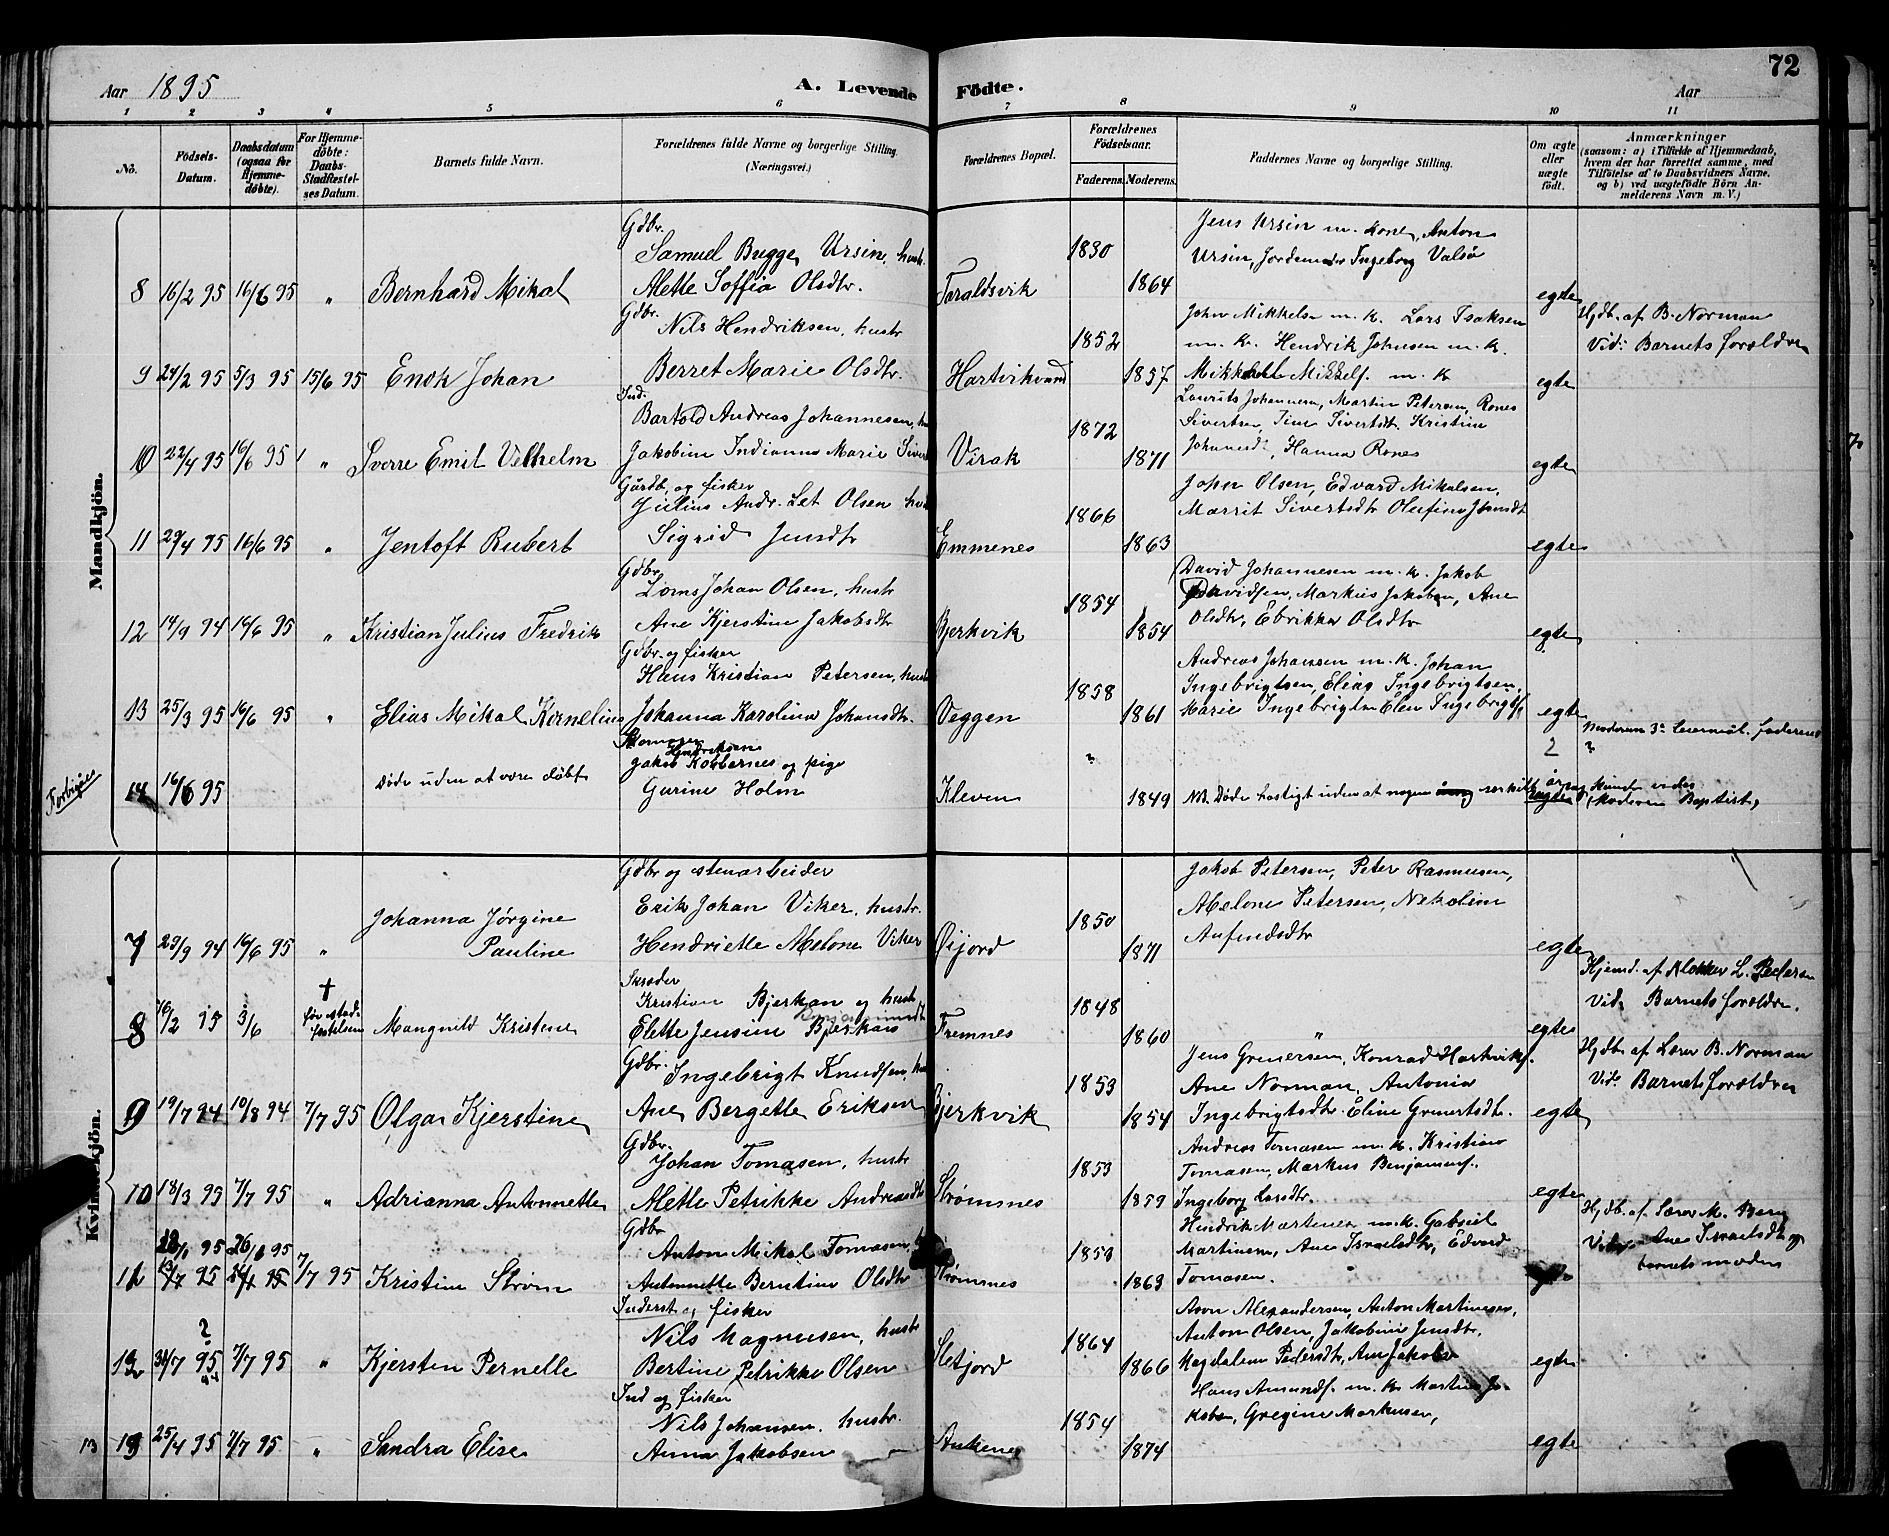 Aar 1895
A. Levende Födte.
72
Aar
1 2 3 4 5 6 7 8 9 10 11
No.
Födsels-Datum.
Daabsdatum (ogsaa for Hjemme-döbte).
For Hjemme-döbte: Daabs-Stadfæstel-ses Datum.
Barnets fulde Navn.
Forældrenes fulde Navne og borgerlige Stilling. (Næringsvei.)
Forældrenes Bopæl.
Forældrenes Födselsaar.
Faderens. Moderens.
Faddernes Navne og borgerlige Stilling.
Om ægte eller uægte födt.
Anmærkninger (saasom: a) i Tilfælde af Hjemmedaab, hvem der har forrettet samme, med Tilföielse af to Daabsvidners Navne, og b) ved uægtefödte Börn Anmelderens Navn m. V.)
Mandkjön.
Gdbr.
Samuel Bugge Ursin, hustr.
8 16/2 95 16/6 95 " Bernhard Mikal Alette Soffia Olsdtr. Taraldsvik 1830 1864
Jens Ursin m. kone, Anton
Ursin, Jordemoder Ingeborg Valsø
egte
Gdbr.
Nils Hendriksen, hustr
9 24/2 95 5/3 95 15/6 95 Enok Johan Berret Marie Olsdtr. Hartvikvand 1852 1857
John Mikkelsen m. k. Lars Isaksen
m. k. Hendrik Johnsen m. k.
Mikkel Mikkels. m. k
egte
Hjdb. af B. Norman
Vid: Barnets forældre
Ind.
Bartold Andreas Johannesen, hu
10 22/4 95 16/6 95 " Sverre Emil Velhelm Jakobine Indianna Marie Sivert Virak 1872 1871
Laurits Johannesen, Martin Petersen, Rones
Sivertsen, Sivertsdt Kristine
Johannesd. Hanna Rones
egte
Gårdb. og fisker
Julius Andr. Olsen hust
11 29/4 95 16/6 95 " Jentoft Rubert Sigrid Jensdtr Emmenes 1866 1863
John Olsen, Edvard Mikalsen,
Marrit Sivertsdtr Olufine Jensdt
egte
Gdbr.
Lorns Johan Olsen, hustr
12 14/9 94 16/6 95 " Kristian Julius Fredrik Ane Kjerstine Jakobsdtr Bjerkvik 1854 1854
David Johannesen m. k. Jakob
Davidsen, Markus Jakobsen, Ane
Olsdtr, Ebrikke Olsdtr
egte
Gdbr. og fisker
Hans Kristian Petersen, hustr
13 25/3 95 16/6 95 " Elias Mikal Kornelius Johanna Karolina Johansdtr. Veggen 1858 1861
Andreas Johansen m. k. Johan
Ingebrigtsen, Elias Ingebrigtsen,
Marie Ingebrigts Elen Ingebrigts
egte
Forbigåes
Hendriksen
Jakob Kobbernes og pige
14 16/6 95 Døde uden at være døbt Gurine Holm Kleven " 1849 NB. Døde hastigt uden at nogen særkilt
2
uegte
Moderens 3die Leiermål. faderens
"
årsag kunde vides
Moderen Baptist,
Kvindekjön.
Gdbr og stenarbeider
Erik Johan Viker, hustr.
7 29/9 94 16/6 95 " Johanna Jörgine
Pauline
Hendriette Melone Viker Øijord 1850 1871
Jakob Petersen, Peter Rasmusen,
Melone Petersen, Nikoline
Anfindsdtr
egte
Skræder
Kristian Bjerkan og hustr
8 16/2 95 3/6 † før stadfæstelsen Mangnild Kristene Elette Jensine Bjerkans Fremnes 1848 1860 " egte
Hjemd. af Klokker L. Pedersen
Vid. Barnets forældre.
Gdbr.
Ingebrigt Knudsen, hu
9 19/7 94 10/8 94 7/7 95 Olga Kjerstine Ane Bergette Eriksen Bjerkvik 1853 1854
Jens Grenersen, Konrad Hartviks.
Ane Norman, Antonia
Ingebrigtsdtr Eline Grenertsdtr.
egte
Hjdb. af Lærer B. Norman
Vid. Barnets forældre
Gdbr.
Johan Tomasen, hustr
10 18/3 95 7/7 95 " Adrianna Antonnette Alette Petrikke Andreasdt Strømsnes 1853 1859
Andreas Tomasen m. k. Kristian
Tomasen, Markus Benjamins.
Ingeborg Larsdtr.
egte
Gdbr
Anton Mikal Tomasen,
11 26/6 95 7/7 95 Kristine Strøm Antonnette Berntine Olsdtr Strømsnes 1859 1863
Hendrik Martenes m. k. Gabriel
Martinsen, Ane Israelsdtr, Edvard
Tomasen.
Hjdb. af Lærer M. Berg
Vid. Ane Israelsdt og
barnets moder
Inderst og fisker
Nils Magnusen, hustr
12 31/7 95 ? 7/7 95 " Kjersten Pernelle Bertine Petrikke Olsen Sletjord 1864 1866
Aron Alexandersen, Anton Martinesen,
Anton Olsen, Jakobine Jensdtr,
Magdalena Pedersdtr, Ane Jakobs
egte
Ind og fisker
Nils Johansen, hustr.
13 13 25/4 95 7/7 95 " Sandra Elise Anna Jakobsen Ankenes 1854 1874
Hans Amunds. m. k Martin Ja-
kobs, Gregine Markusen,
egte